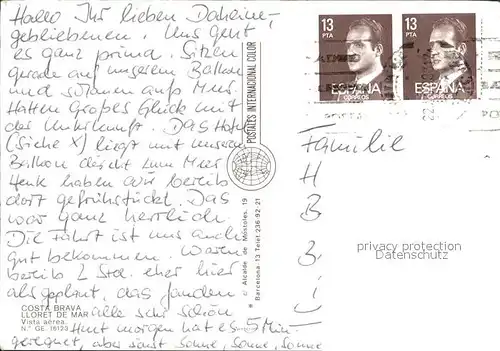 Hallo Ihr lieben Daheim-
gebliebenen. Uns geht
es ganz prima. Sitzen
gerade auf unserem Balkon
und schauen aufs Meer.
Hatten großes Glück mit
der Unterkunft. Das Hotel
(siehe X) liegt mit unserem
Balkon direkt zum Meer
Heut haben wir bereits
dort gefrühstückt. Das
war ganz herrlich.
Die Fahrt ist uns auch
gut bekommen. Waren
bereits 2 Std. eher hier
als geplant, das fanden
alle sehr schön
Heut morgen hat es 5 Min
geregnet, aber sonst Sonne, Sonne, Sonne
COSTA BRAVA
LLORET DE MAR
Vista aérea.
N.° GE. 19123
POSTALES INTERNACIONAL COLOR
© Alcalde de Móstoles, 19
Barcelona-13 Telef. 236-92-21
13
PTA
ESPAÑA
CORREOS
13
PTA
ESPAÑA
CORREOS
Familie
H
B
privacy protection
Datenschutz